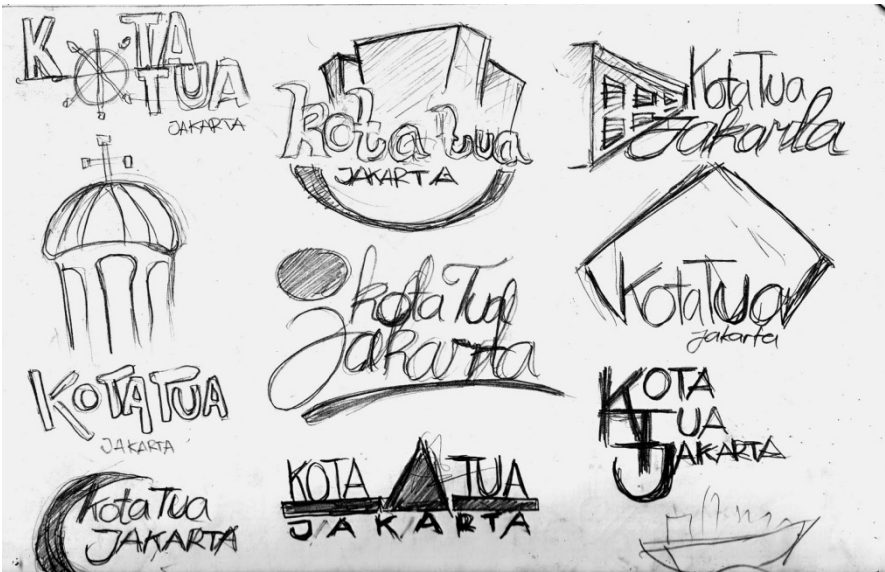 KOTA
TUA
JAKARTA
KOTA TUA
JAKARTA
Kota Tua
JAKARTA
kota tua
JAKARTA
kota Tua
jakarta
KOTA TUA
JAKARTA
Kota Tua
Jakarta
Kota Tua
jakarta
KOTA
TUA
JAKARTA